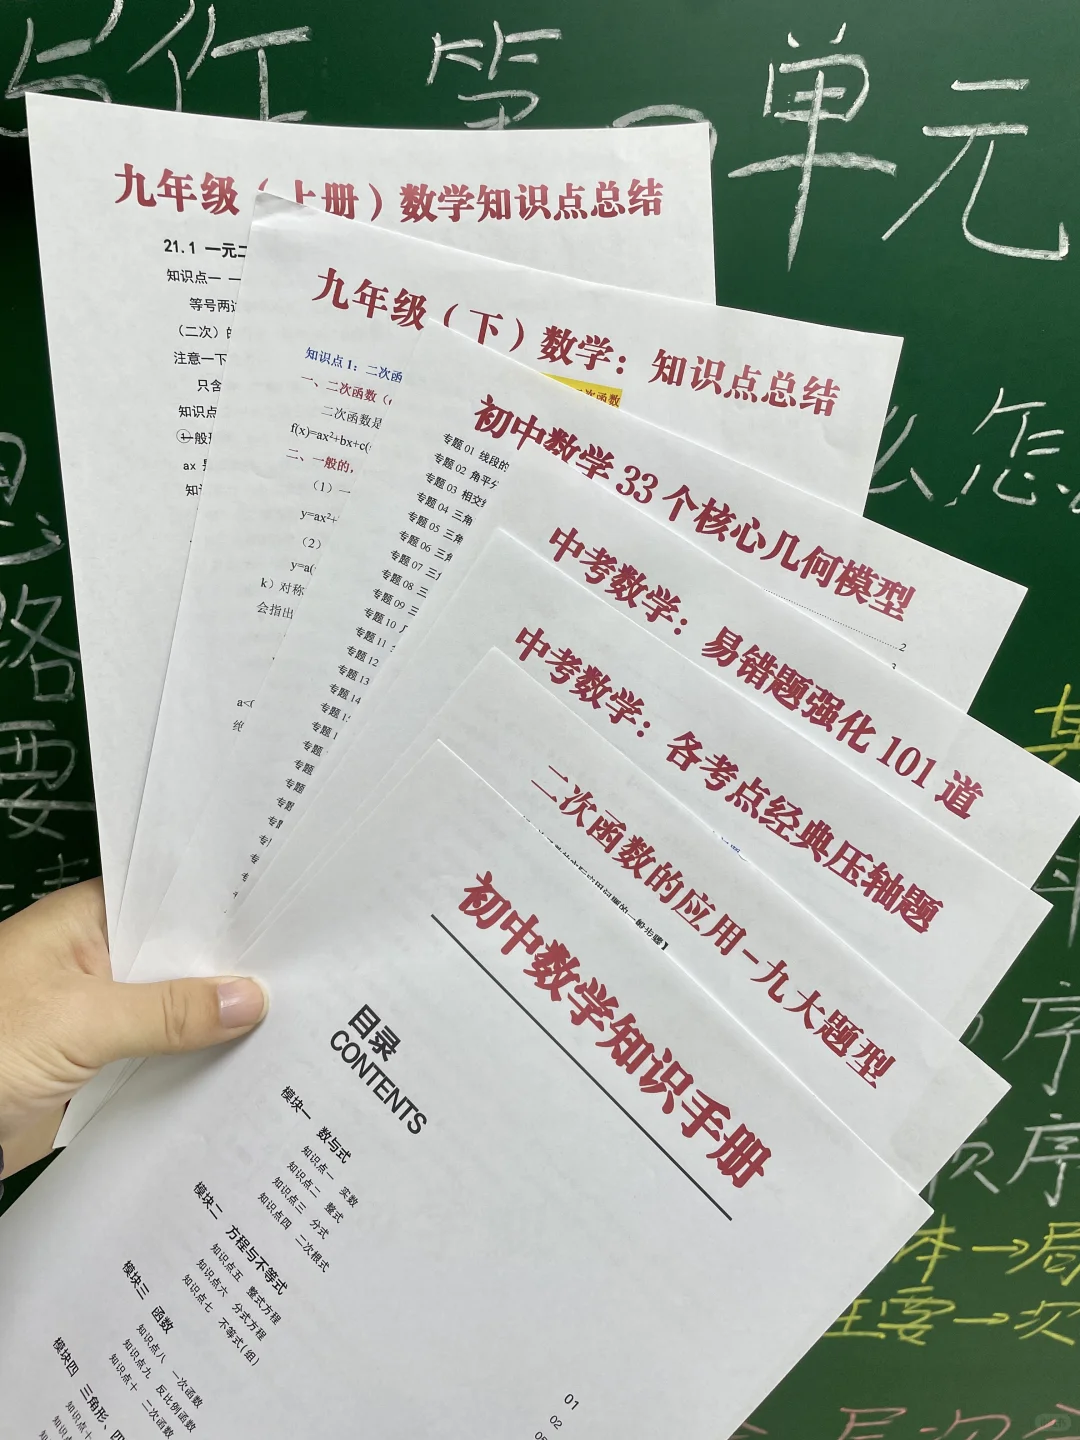 写作 第 单元
九年级（上册）数学知识点总结
21.1 一元二
知识点一
等号两边
（二次）的
注意一下
只含
知识点
①一般形
ax
知识
九年级（下）数学：知识点总结
知识点1：二次函
二次函数
一、二次函数（
二次函数是
f(x)=ax²+bx+c(
二、一般的，
（1）一
y=ax²+
（2）
y=a(
k）对称
会指出
a<0
初中数学33个核心几何模型
专题01 线段的
专题02 角平分
专题03 相交线
专题04 三角
专题05 三角
专题06 三角
专题07 三
专题08 三
专题09 三
专题10
专题11
专题12
专题13
专题14
专题1
专题1
专题
专题
专题
专题
专题
2
3
中考数学：易错题强化101道
中考数学：各考点经典压轴题
二次函数的应用-九大题型
的一般步骤】
初中数学知识手册
目录
CONTENTS
模块一 数与式
知识点一 实数
知识点二 整式
知识点三 分式
知识点四 二次根式
模块二 方程与不等式
知识点五 整式方程
知识点六 分式方程
知识点七 不等式(组)
模块三 函数
知识点八 一次函数
知识点九 反比例函数
知识点十 二次函数
模块四 三角形、四
知识点十
知识点
01
02
05
么怎
思路要清
序
顺序
体→局
主要→次
层次